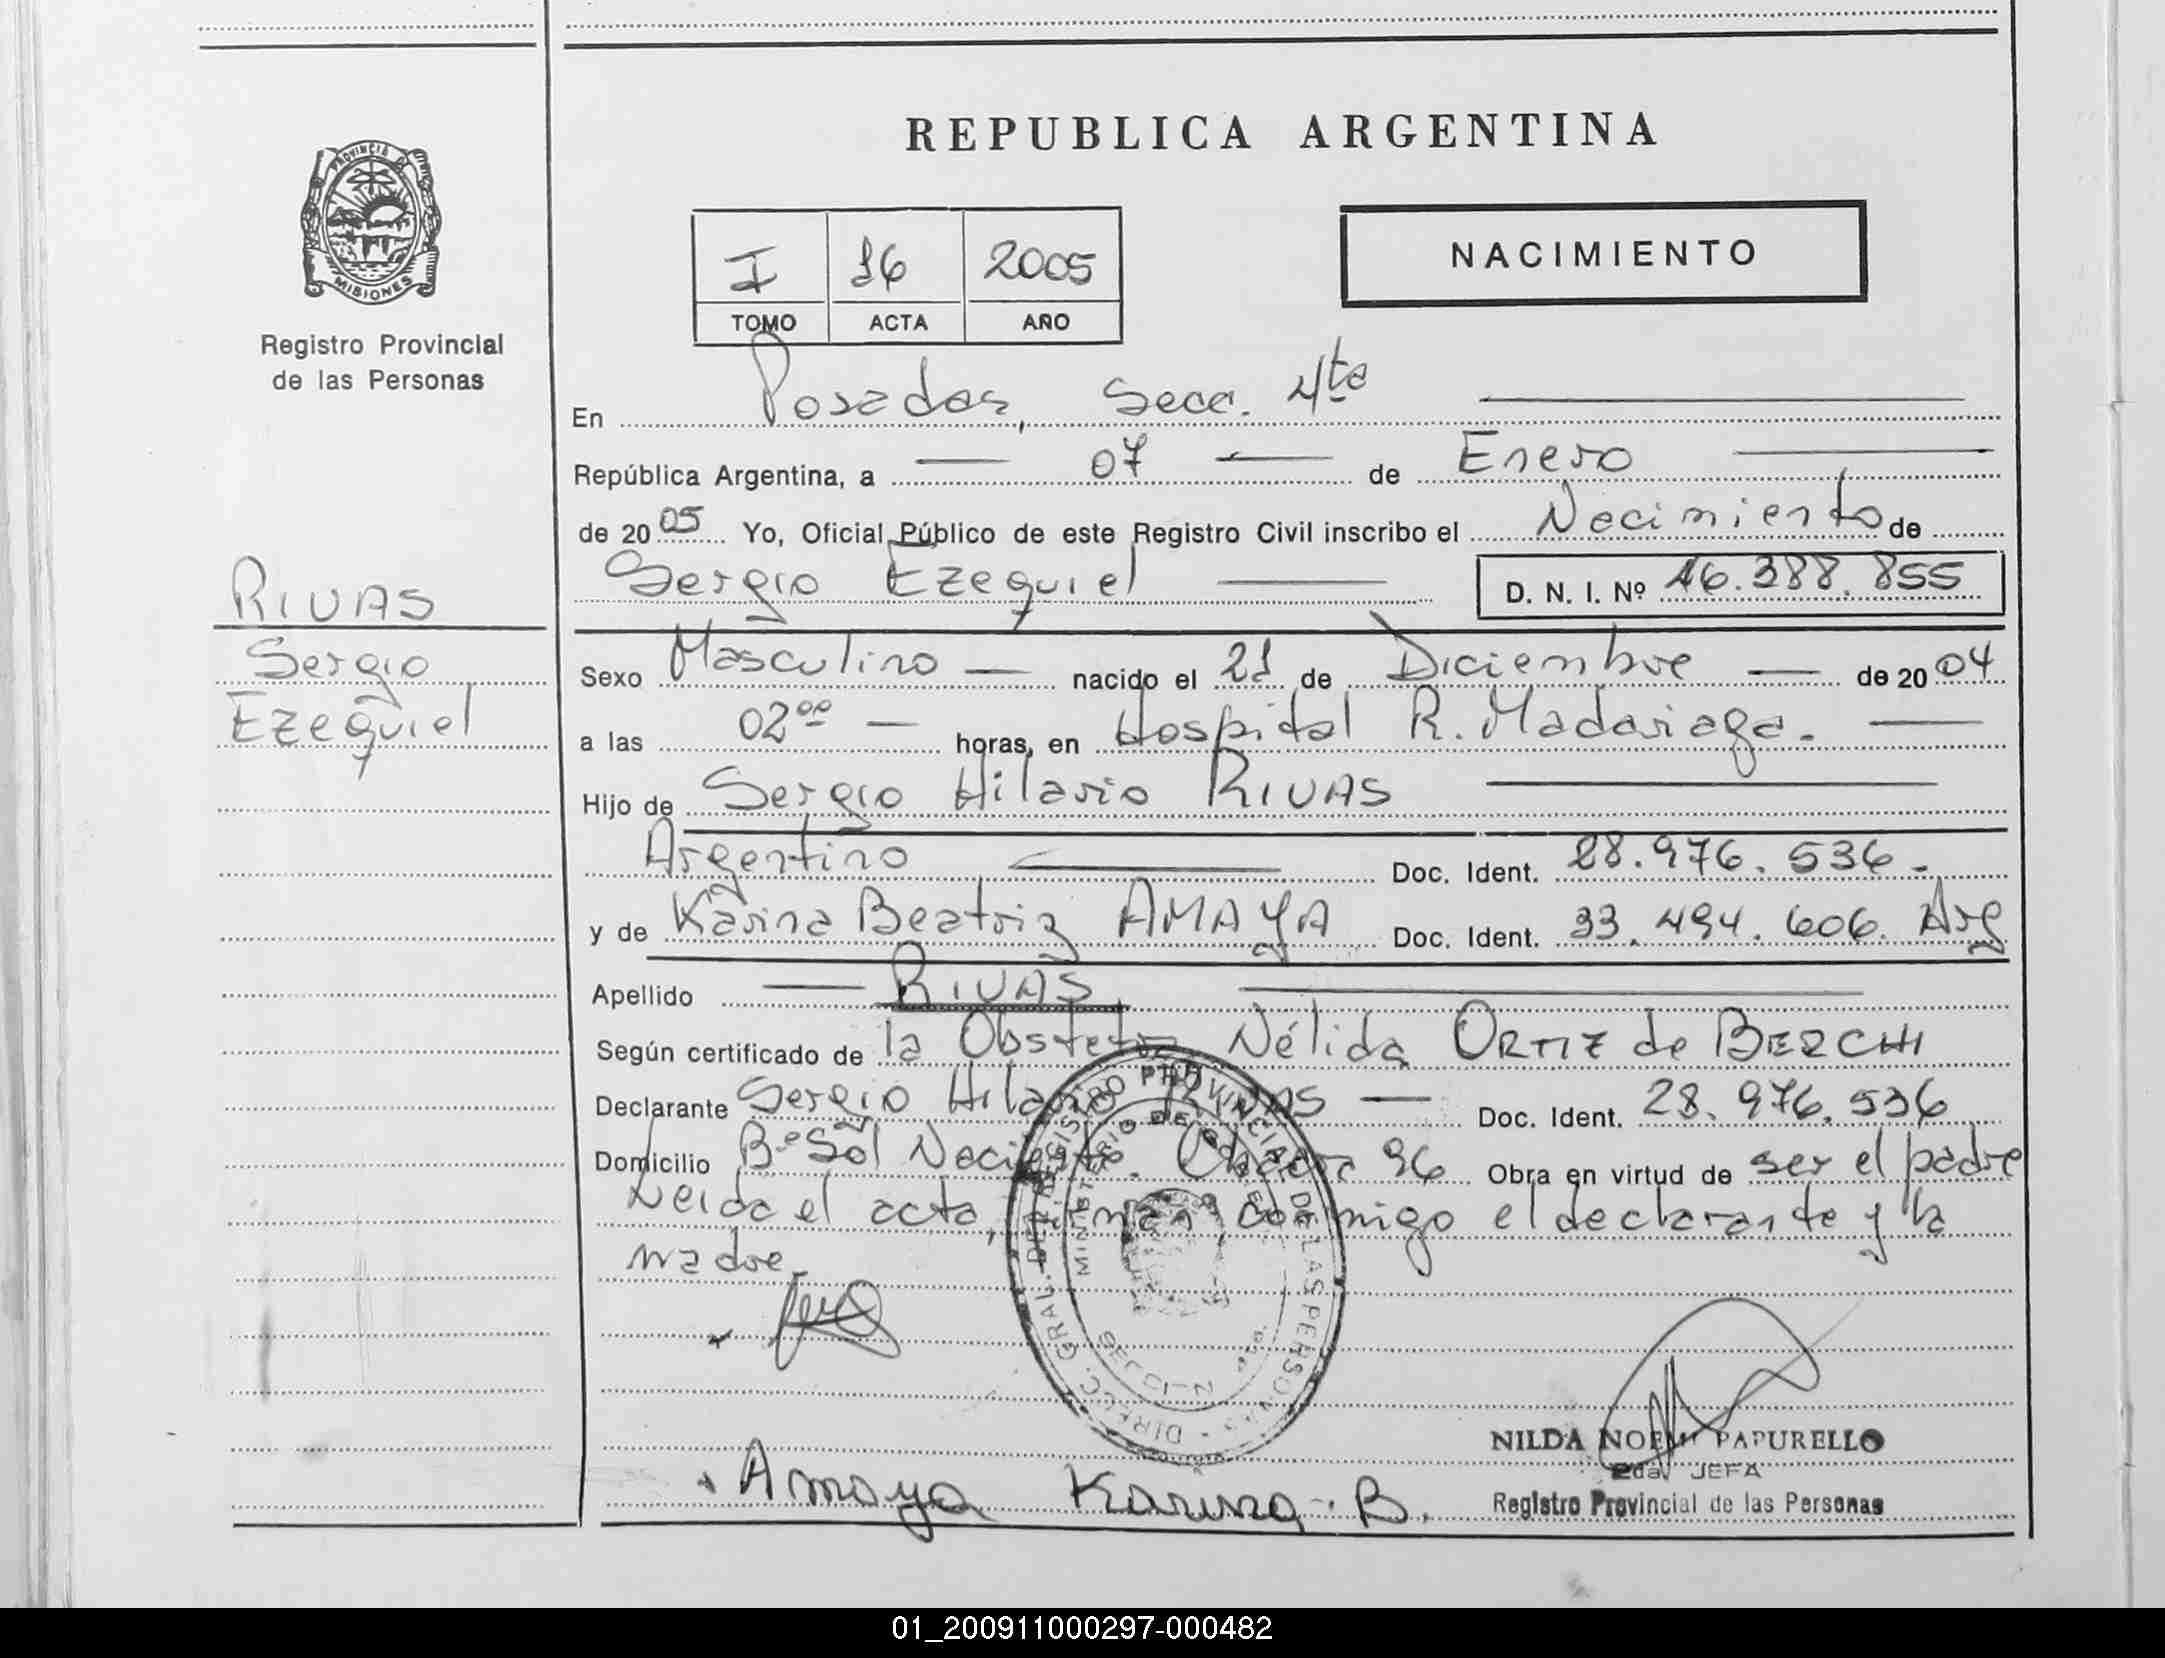 REPUBLICA ARGENTINA
PROVINCIA DE MISIONES
Registro Provincial
de las Personas
I 16 2005
TOMO ACTA AÑO
NACIMIENTO
En Posadas, Secc. 4ta
República Argentina, a 07 de Enero
de 2005 Yo, Oficial Público de este Registro Civil inscribo el Nacimiento de
Sergio Ezequiel D. N. I. Nº 46.388.855
RIVAS
Sergio
Ezequiel
Sexo Masculino nacido el 21 de Diciembre de 2004
a las 02ºº horas, en Hospital R. Madariaga.
Hijo de Sergio Hilario RIVAS
Argentino Doc. Ident. 28.976.536.
y de Karina Beatriz AMAYA Doc. Ident. 33.494.606. Arg
Apellido RIVAS
Según certificado de la Obstetra Nélida ORTIZ de BERCHI
Declarante Sergio Hilario RIVAS Doc. Ident. 28.976.536
Domicilio Bº Sol Naciente. Chacra 96 Obra en virtud de ser el padre
Leida el acta, firman conmigo el declarante y la
madre.
DIREC. GRAL. DEL REGISTRO PROVINCIAL DE LAS PERSONAS
MINISTERIO DE
Amaya Karina B.
NILDA NOEMI PAPURELLO
2da. JEFA
Registro Provincial de las Personas
01_200911000297-000482